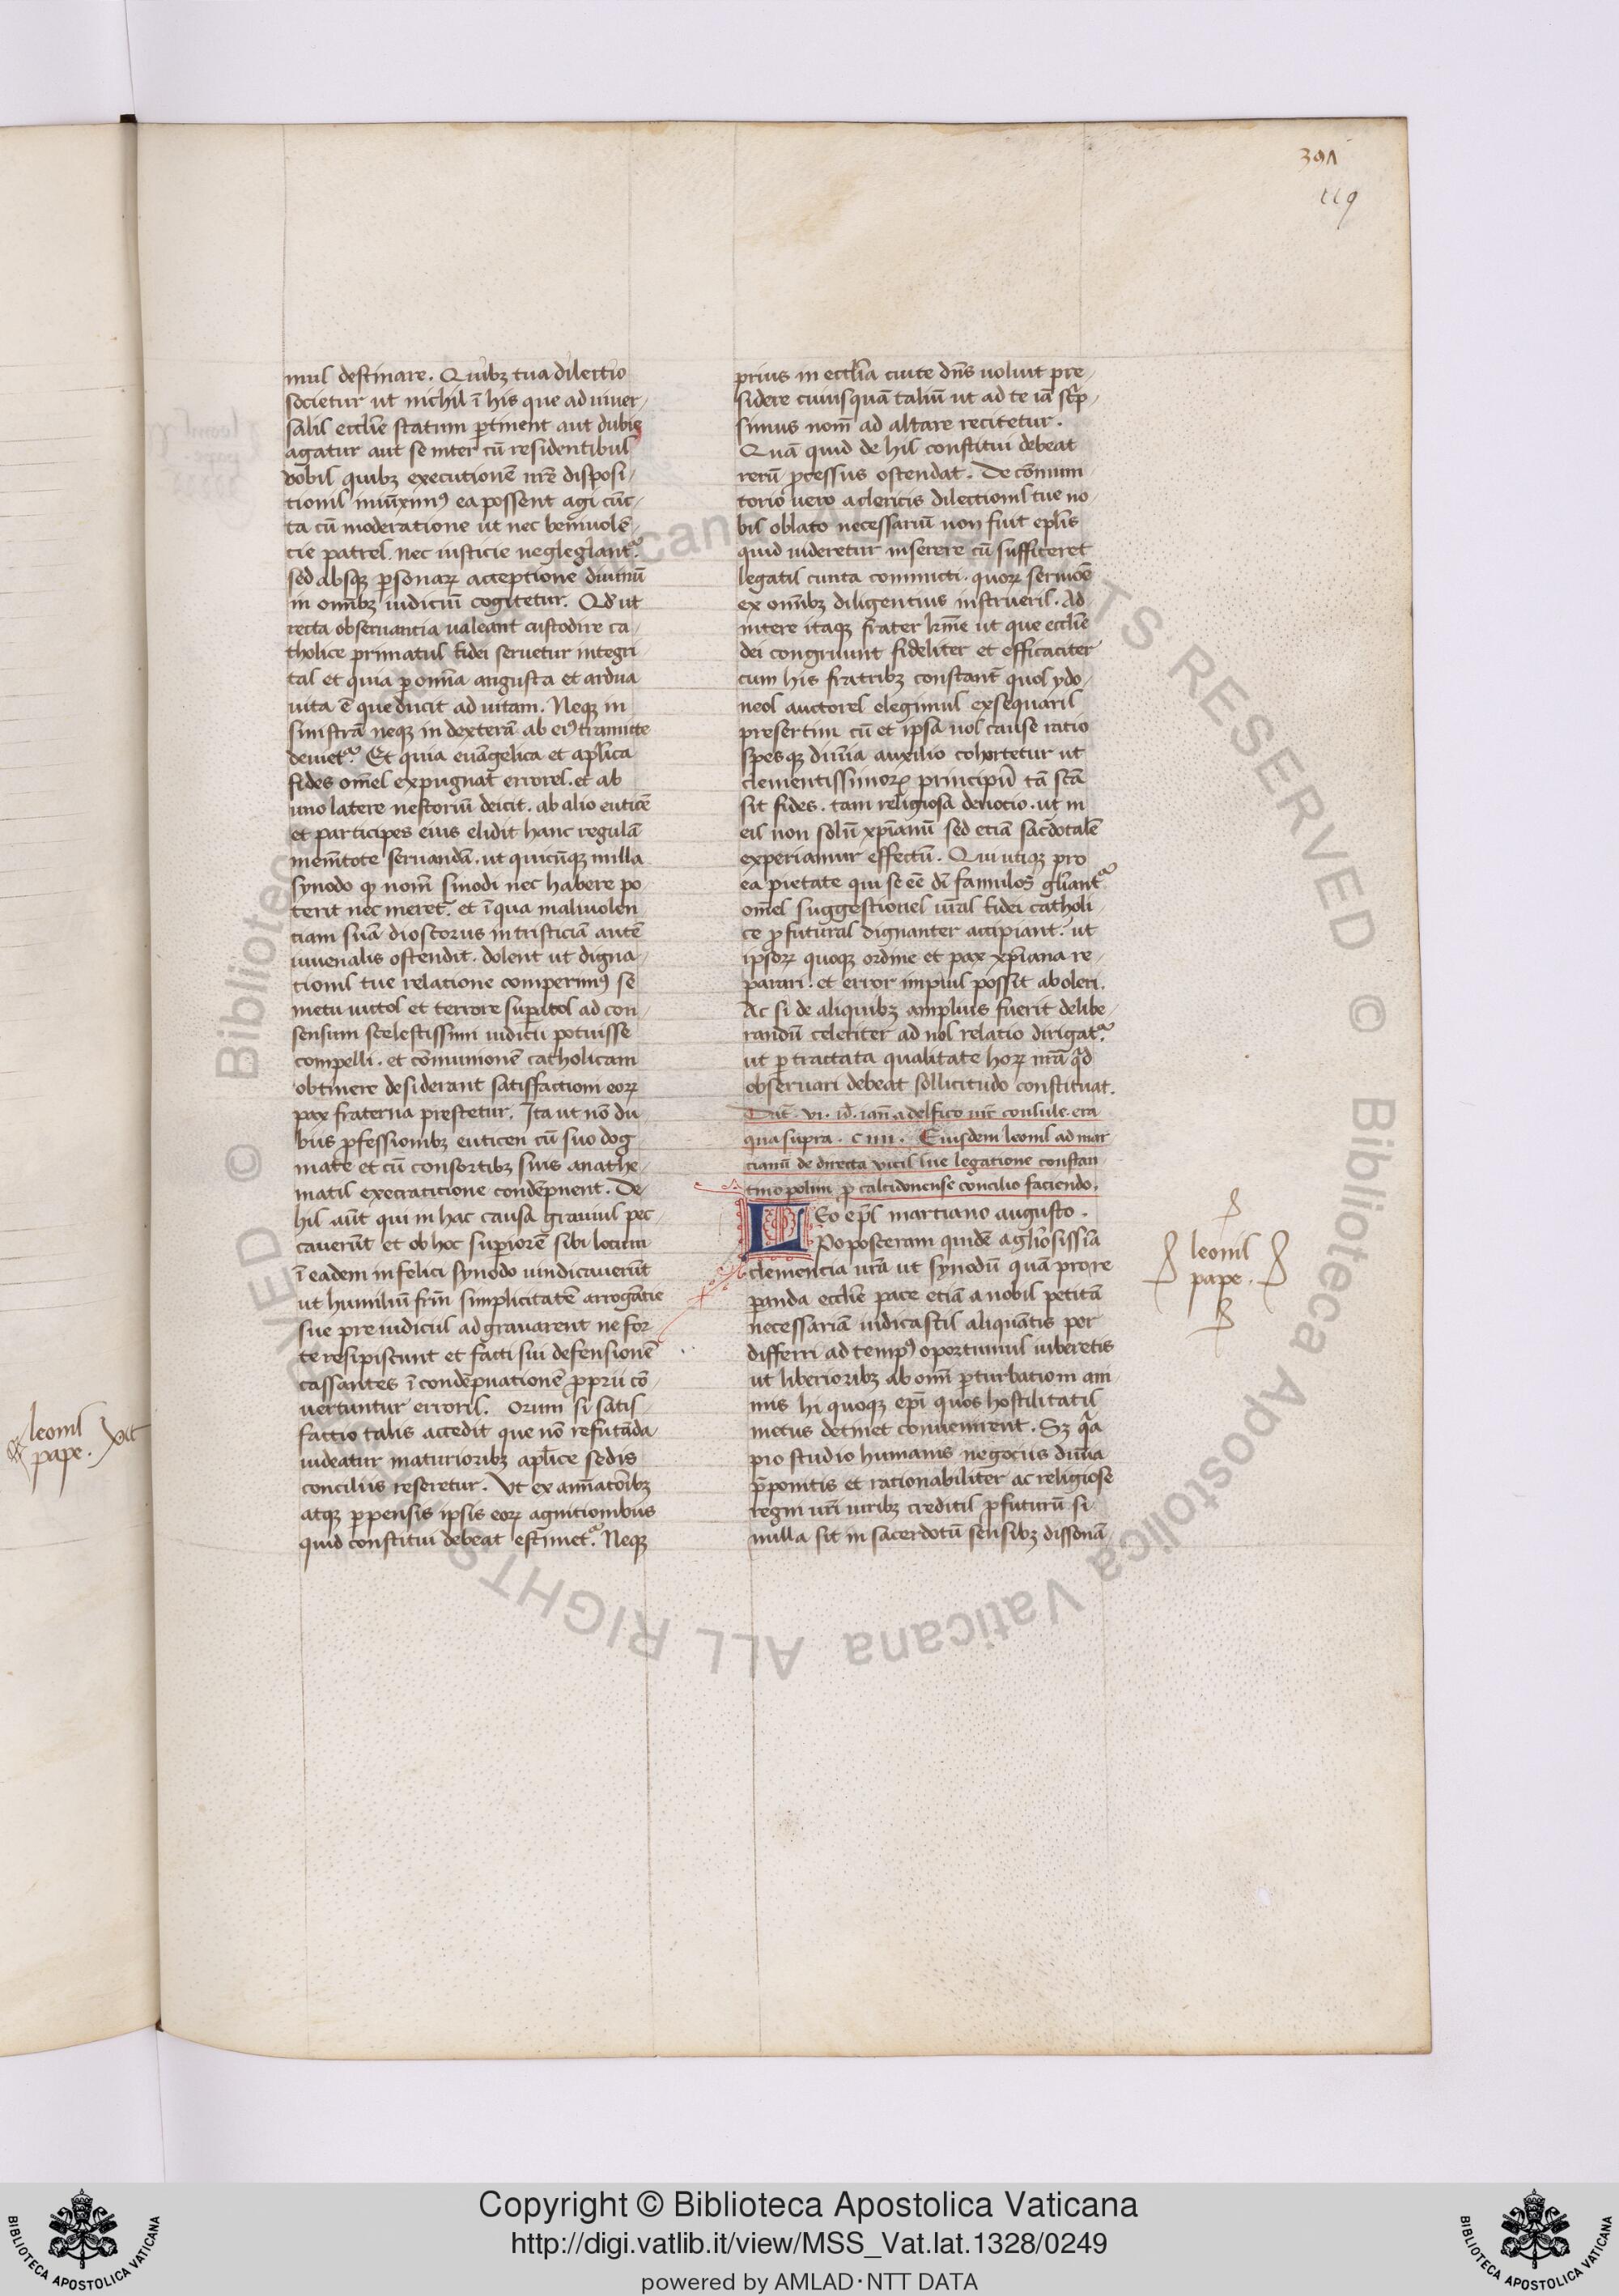 391
119
mul destinare. Quibꝫ tua dilectio
societur ut nichil ī his que ad uniuer-
salis ecclīe statum ꝑtinent aut dubie
agatur aut se inter cū residentibus
vobis quibꝫ executionē nr̄e disposi-
tionis iniūximꝰ ea possent agi cūc-
ta cū moderatione ut nec beniuolē-
cie patres. nec iusticie neglegāntᷣ.
sed absqꝫ ꝑsonaꝝ acceptione diuinū
in omībꝫ iudiciū cogitetur. Qd̓ ut
recta obseruancia ualeant custodire ca-
tholice primatus fidei seruetur integri-
tas et quia ꝑ omīa angusta et ardua
uita ē que ducit ad uitam. Neqꝫ in
sinistrā neqꝫ in dexterā ab eiꝰ tramite
deuietᷣ. Et quia euāngelica et apl̄ica
fides om̄es expugnat errores. et ab
uno latere nestoriū deicit. ab alio euticē
et participes eius elidit hanc regulā
mem̄tote seruandā. ut quicūqꝫ nulla
synodo qꝫ nom̄ sinodi nec habere po-
terit nec meretᷣ. et ī qua maliuolen
ciam suā dioscorus in tristiciā autē
iuuenalis ostendit. dolent ut digna-
tionis tue relatione comperimꝰ se
metu uictos et terrore suꝑatos ad con-
sensum scelestissimi iudicii potuisse
compelli. et cōmunionē catholicam
obtinere desiderant satisfactioni eoꝝ
pax fraterna prestetur. Ita ut nō du-
biis ꝓfessionibꝫ euticen cū suo dog
mate et cū consortibꝫ suis anathe-
matis execraticione condēpnent. De
his aūt qui in hac causa grauius pec-
cauerūt et ob hoc suꝑiorē sibi locum
ī eadem infelici synodo uindicauerūt
ut humiliū fr̄m simplicitatē arrogācie
sue preiudicius adgrauarent ne for
te resipiscunt et facti sui defensionē
cassantes ī condēpnationē ꝓprii cō-
uertuntur erroris. orum si satis-
factio talis accedit que nō refutāda
uideatur maturioribꝫ apl̄ice sedis
conciliis reseretur. Vt examīatoribꝫ
atqꝫ ꝑpensis ipsis eoꝝ agnitionibus
quid constitui debeat estimetᷣ. Neqꝫ
prius in eccl̄ia ciute dn̄s uoluit pre-
sidere cuiusquā taliū ut ad te iā scͥp-
simus nom̄ ad altare recitetur.
Quā quid de his constitui debeat
rerū ꝓcessus ostendat. De cōmuni-
torio uero a clericis dilectionis tue no-
bis oblato necessariū non fuit epl̄is
quid uideretur inserere cū sufficeret
legatis cunta conmicti. quoꝝ sermōē
ex omībꝫ diligentius instrueris. Ad
nitere itaqꝫ frater kr̄me ut que eccl̄ie
dei congruunt fideliter et efficaciter
cum his fratribꝫ constant quos ydo-
neos auctores elegimus exsequaris
presertim cū et ipsa uos cause ratio
spesqꝫ diuīa auxilio cohortetur ut
clementissimoꝝ principū tā scā
sit fides. tam religiosa deuocio. ut in
eis non solū xp̄ianū sed etiā sac̄dotalē
experiamur effectū. Qui utiqꝫ pro
ea pietate qui se eē dī famulos gl̄iantᷣ
om̄es suggestiones ur̄as fidei catholi-
ce ꝓfuturas dignanter accipiant. ut
ipsoꝝ quoqꝫ ordine et pax xp̄iana re-
parari. et error impius possit aboleri.
Ac si de aliquibꝫ amplius fuerit delibe-
randū celeriter ad nos relatio dirigatᷣ.
ut ꝑtractata qualitate hoꝝ nr̄a qͥd
obseruari debeat sollicitudo constituat.
Dat̄. vi. id̄. ian̄ adelfico uic̄ consule. era
qua supra. c iiii. Eiusdem leonis ad mar
cianū de directa vicis sue legatione constan-
tinopolim ꝓ calcidonense concilio faciendo.
LEo ep̄s martiano augusto.
Poposceram quidē a glīosissīa
clemencia ur̄a ut synodū quā pro re
ꝑanda eccl̄ie pace etiā a nobis petitā
necessariā iudicastis aliquātis per
differri ad tempꝰ oportunius iuberetis
ut liberioribꝫ ab omī ꝑturbationi ani
mis hi quoqꝫ epī quos hostilitatis
metus detinet conuenirent. Sꝫ qͣa
pro studio humanis negociis diuīa
p̄ponitis et rationabiliter ac religiose
regni ur̄i uiribꝫ creditis ꝓfuturū si
nulla sit in sacerdotū sensibꝫ dissonā
leonis
pape.
leonis
pape.
Copyright © Biblioteca Apostolica Vaticana
http://digi.vatlib.it/view/MSS_Vat.lat.1328/0249
powered by AMLAD·NTT DATA
BIBLIOTECA APOSTOLICA VATICANA
BIBLIOTECA APOSTOLICA VATICANA
© Biblioteca Apostolica Vaticana ALL RIGHTS RESERVED © Biblioteca Apostolica Vaticana ALL RIGHTS RESERVED